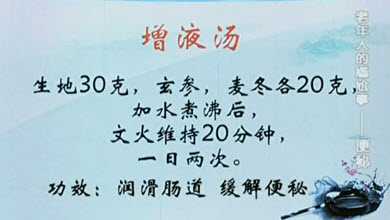 增液汤
生地30克，玄参，麦冬各20克，
加水煮沸后，
文火维持20分钟，
一日两次。
功效：润滑肠道 缓解便秘
老年人的尴尬事——便秘